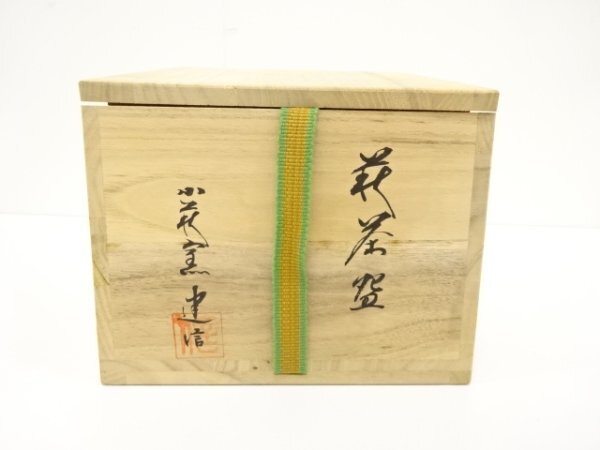 萩茶盌
小萩窯 建信